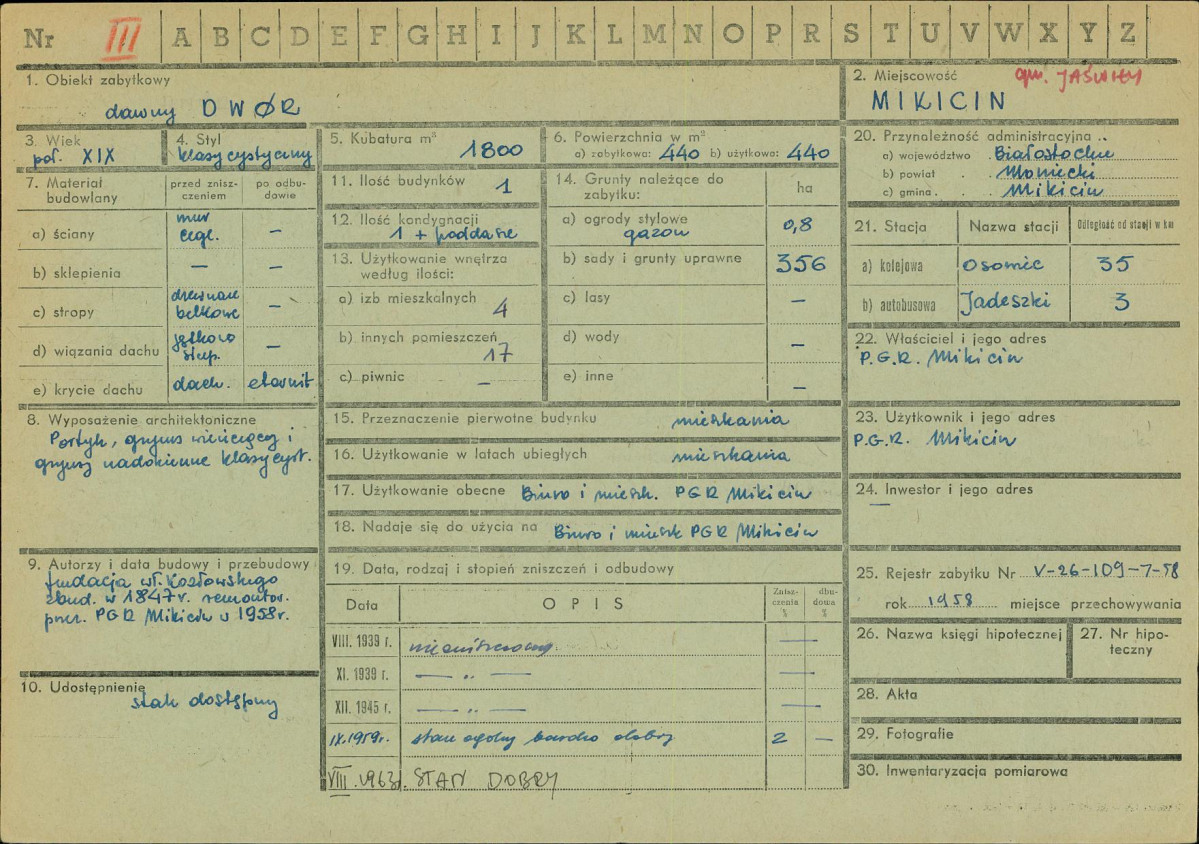 Nr III A B C D E F G H I J K L M N O P R S T U V W X Y Z
1. Obiekt zabytkowy
dawny DWÓR
2. Miejscowość gm. JAŚWIŁY
MIKICIN
3. Wiek
poł. XIX
4. Styl
klasycystyczny
5. Kubatura m³ 1800
6. Powierzchnia w m²
a) zabytkowa: 440 b) użytkowa: 440
7. Materiał budowlany
przed zniszczeniem
po odbudowie
a) ściany mur cegl. –
b) sklepienia – –
c) stropy drewniane belkowe –
d) wiązania dachu –
e) krycie dachu dach. eternit
8. Wyposażenie architektoniczne
Portyk, gzyms wieńczący i
gzymsy nadokienne klasycyst.
9. Autorzy i data budowy i przebudowy
fundacja wł. Kozłowskiego
zbud. w 1847 r. remontow.
przez PGR Mikicin w 1958 r.
10. Udostępnienie
stale dostępny
11. Ilość budynków 1
12. Ilość kondygnacji
1 + poddasze
13. Użytkowanie wnętrza
według ilości:
a) izb mieszkalnych 4
b) innych pomieszczeń 17
c) piwnic –
14. Grunty należące do
zabytku:
ha
a) ogrody stylowe
gazon 0,8
b) sady i grunty uprawne 356
c) lasy –
d) wody –
e) inne –
15. Przeznaczenie pierwotne budynku mieszkania
16. Użytkowanie w latach ubiegłych mieszkania
17. Użytkowanie obecne Biuro i mieszk. PGR Mikicin
18. Nadaje się do użycia na Biuro i mieszk PGR Mikicin
19. Data, rodzaj i stopień zniszczeń i odbudowy
Data OPIS Zniszczenia % dbudowa %
VIII. 1939 r. niezniszczony –
XI. 1939 r. – „ – –
XII. 1945 r. – „ – –
IX.1959r. stan ogólny bardzo dobry 2 –
VIII.1963r. STAN DOBRY
20. Przynależność administracyjna
a) województwo Białostockie
b) powiat Moniecki
c) gmina Mikicin
21. Stacja Nazwa stacji Odległość od stacji w km
a) kolejowa Osowiec 35
b) autobusowa Jadeszki 3
22. Właściciel i jego adres
P.G.R. Mikicin
23. Użytkownik i jego adres
P.G.R. Mikicin
24. Inwestor i jego adres
–
25. Rejestr zabytku Nr V-26-109-7-58
rok 1958 miejsce przechowywania
26. Nazwa księgi hipotecznej
27. Nr hipoteczny
28. Akta
29. Fotografie
30. Inwentaryzacja pomiarowa